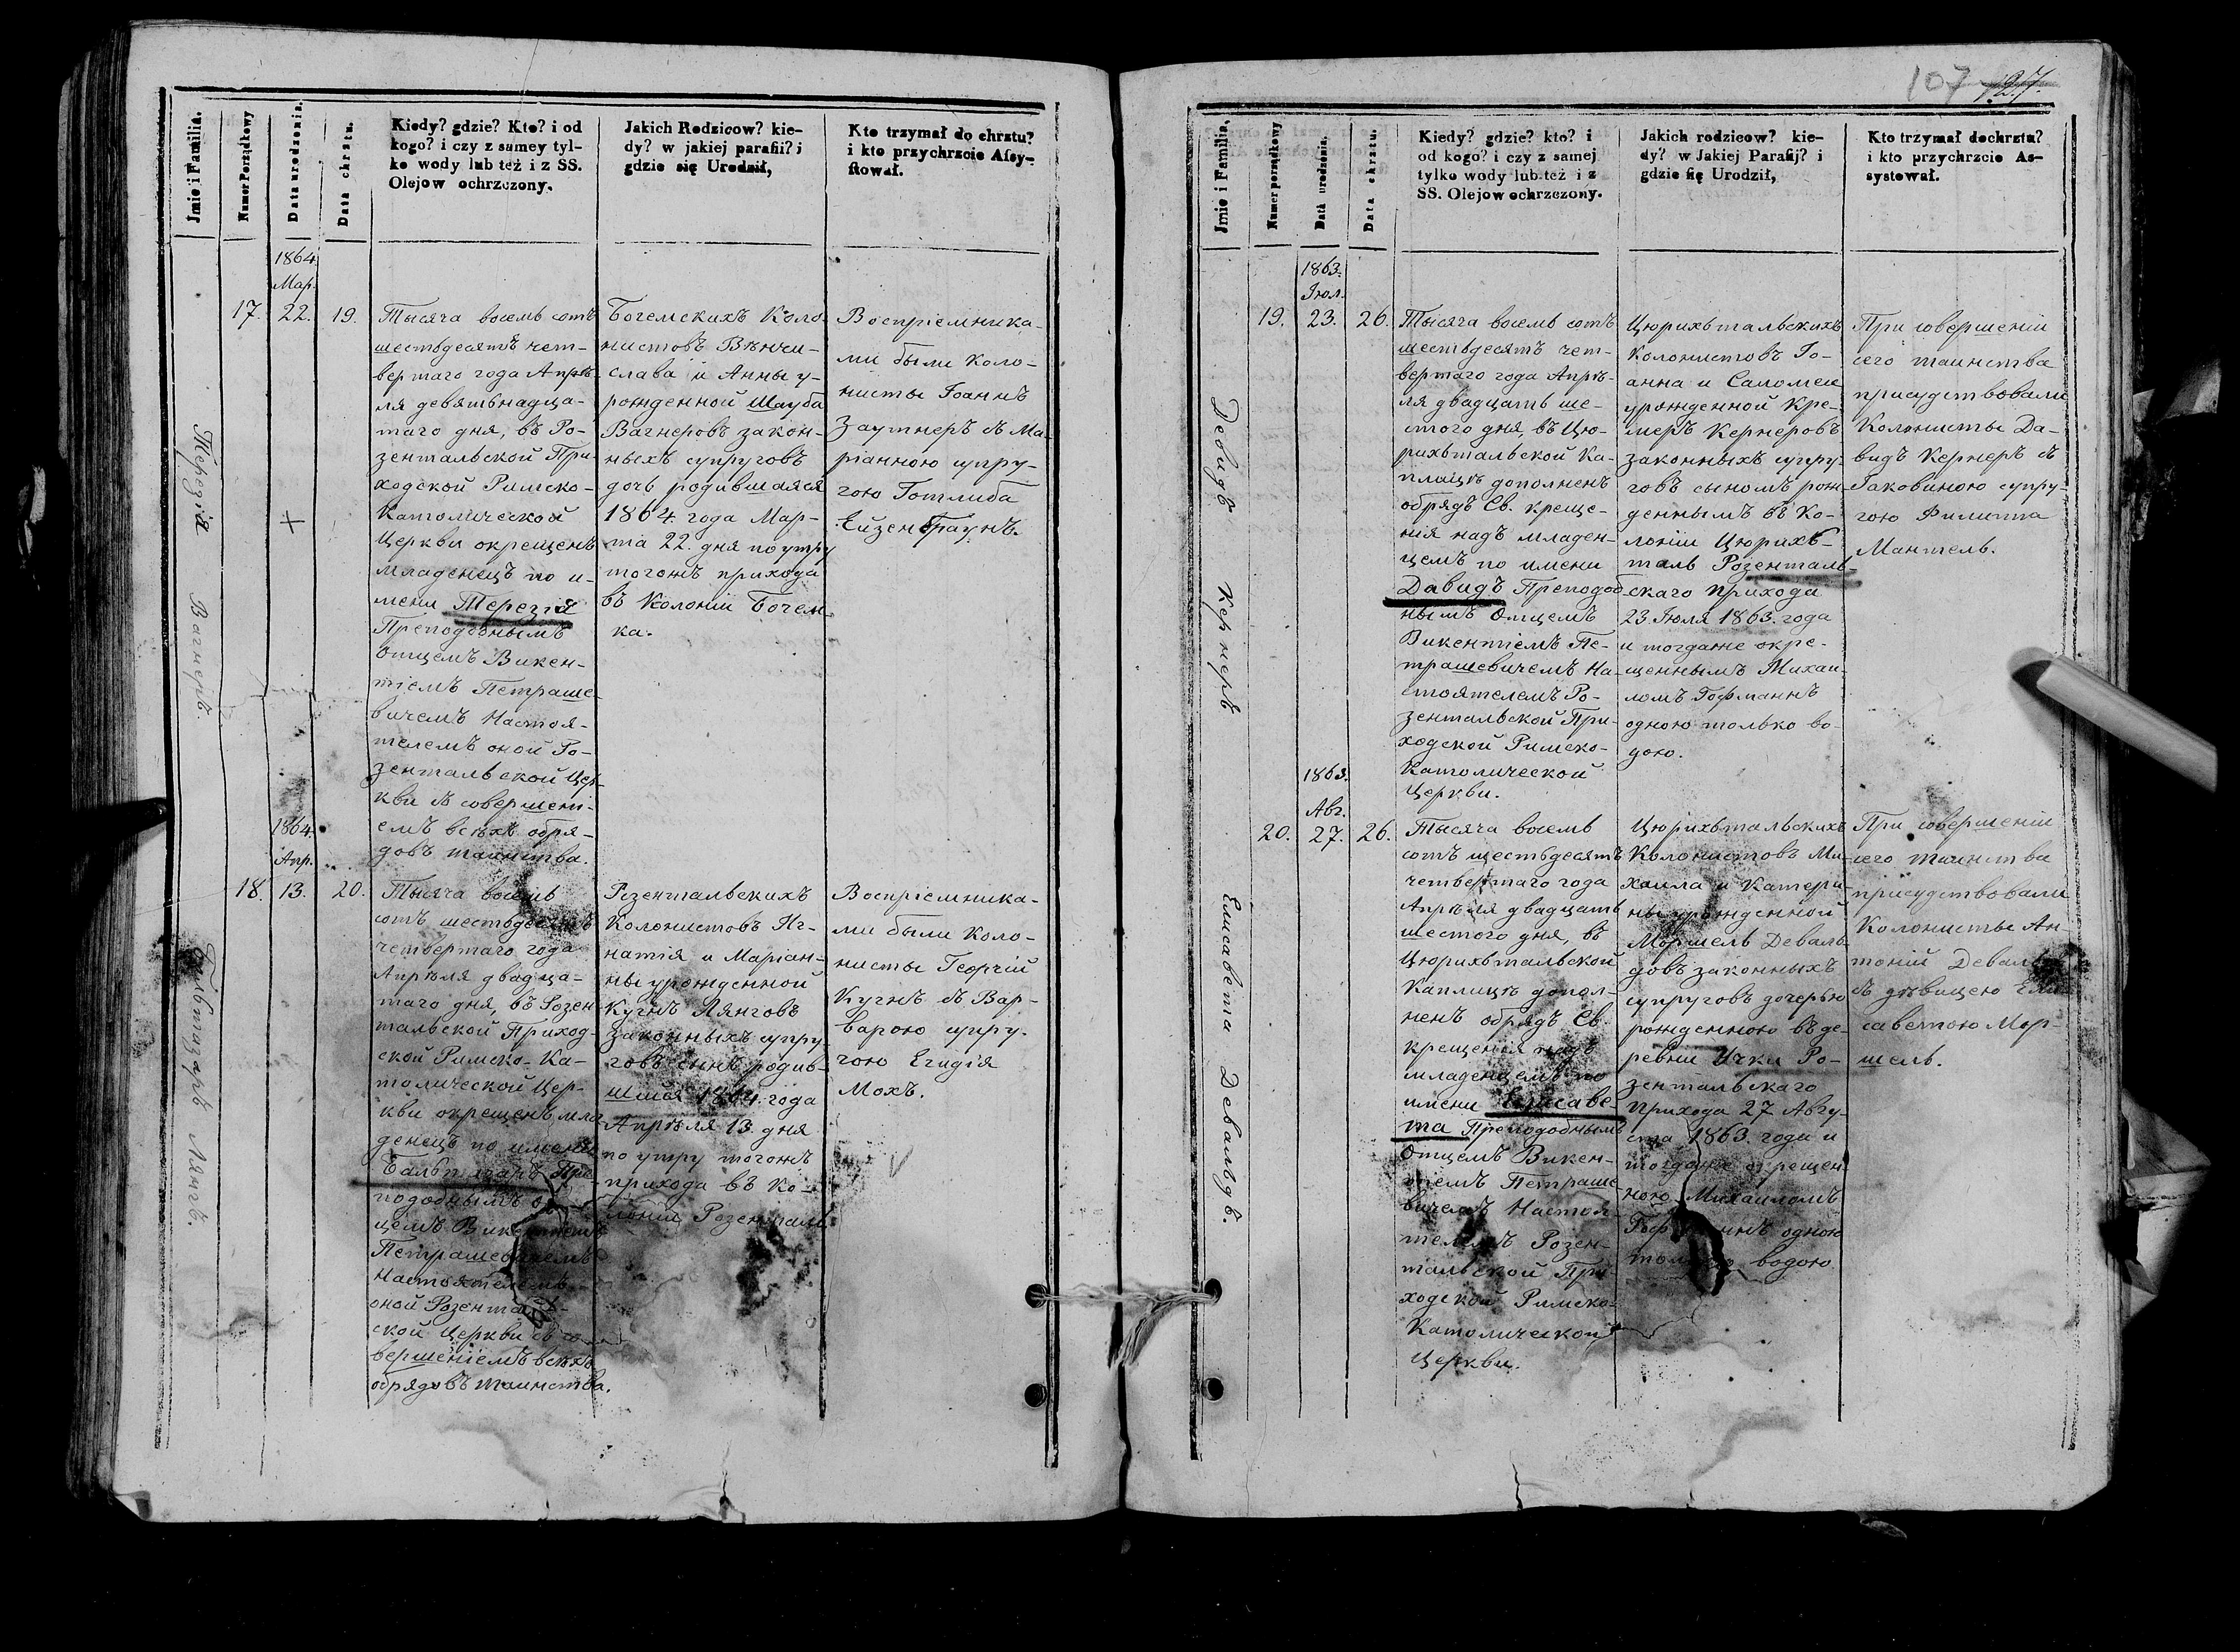 107 127.
Jmie i Familia.
Numer Porządkowy
Data urodzenia.
Data chrztu.
Kiedy? gdzie? Kto? i od
kogo? i czy z samey tyl-
ko wody lub też i z SS.
Olejow ochrzczony.
Jakich Rodzicow? kie-
dy? w jakiej parafii? i
gdzie się Urodził,
Kto trzymał do chrztu?
i kto przychrzcie Assy-
stował.
Терезія Вагнеръ.
1864.
Мар.
17. 22. 19.
Тысяча восемь сотъ
шестьдесятъ чет-
вертаго года Апрѣ-
ля девятьнадца-
таго дня, въ Ро-
зентальской При-
ходской Римско-
Католической
Церкви окрещенъ
младенецъ по и-
мени Терезія
Преподобнымъ
Отцемъ Викен-
тіемъ Петраше-
вичемъ Настоя-
телемъ оной Ро-
зентальской Цер-
кви съ совершені-
емъ всѣхъ обря-
довъ таинства.
Богемскихъ Коло-
нистовъ Вѣнчи-
слава и Анны у-
рожденной Шауба
Вагнеровъ закон-
ныхъ супруговъ
дочь родившаяся
1864. года Мар-
та 22. дня по утру
тогожъ прихода
въ Колоніи Богем
ка.
Воспріемника-
ми были Коло-
нисты Іоаннъ
Заутнеръ съ Ма-
ріанною супру-
гою Готлиба
Ейзенбраунъ.
Бальтазаръ Лянгъ.
1864.
Апр.
18. 13. 20.
Тысяча восемь
сотъ шестьдесятъ
четвертаго года
Апрѣля двадца-
таго дня, въ Розен
тальской Приход-
ской Римско-Ка-
толической Цер-
кви окрещенъ мла
денецъ по имени
Бальтазаръ Пре-
подобнымъ От-
цемъ Викентіемъ
Петрашевичемъ
Настоятелемъ
оной Розенталь-
ской Церкви съ со-
вершеніемъ всѣхъ
обрядовъ таинства.
Розентальскихъ
Колонистовъ Иг-
натія и Маріан-
ны урожденной
Кугнъ Лянговъ
законныхъ супру-
говъ сынъ родив-
шійся 1864. года
Апрѣля 13. дня
по утру тогожъ
прихода въ Ко-
лоніи Розенталь
Воспріемника-
ми были Коло-
нисты Георгій
Кугнъ съ Вар-
варою супру-
гою Егидія
Мохъ.
Jmie i Familia.
Numer porządkowy
Data urodzenia.
Data chrztu.
Kiedy? gdzie? kto? i
od kogo? i czy z samej
tylko wody lub też i z
SS. Olejow ochrzczony.
Jakich rodzicow? kie-
dy? w Jakiej Parafij? i
gdzie się Urodził,
Kto trzymał dochrztu?
i kto przychrzcie As-
systował.
Девидъ Кернеръ
1863.
Іюл.
19. 23. 26.
Тысяча восемь сотъ
шестьдесятъ чет-
вертаго года Апрѣ-
ля двадцать ше-
стого дня, въ Цю-
рихътальской Ка-
плицѣ дополненъ
обрядъ Св. креще-
нія надъ младен-
цемъ по имени
Давидъ Преподоб
нымъ Отцемъ
Викентіемъ Пе-
трашевичемъ На-
стоятелемъ Ро-
зентальской При-
ходской Римско-
Католической
Церкви.
Цюрихътальскихъ
Колонистовъ Іо-
анна и Саломеи
урожденной Кре-
меръ Кернеровъ
законныхъ супру-
говъ сыномъ рож-
деннымъ въ Ко-
лоніи Цюрихъ-
таль Розенталь-
скаго прихода
23. Іюля 1863. года
и тогдаже окре-
щеннымъ Михаи-
ломъ Гофманнъ
одною только во-
дою.
При совершеніи
сего таинства
присудствовали
Колонисты Да-
видъ Кернеръ съ
Іаковиною супру-
гою Филиппа
Мантель.
Елисавета Девальдъ.
1863.
Авг.
20. 27. 26.
Тысяча восемь
сотъ шестьдесятъ
четвертаго года
Апрѣля двадцать
шестого дня, въ
Цюрихътальской
Каплицѣ допол-
ненъ обрядъ Св.
крещенія надъ
младенцемъ по
имени Елисаве-
та Преподобнымъ
Отцемъ Викен-
тіемъ Петраше-
вичемъ Настоя-
телемъ Розен-
тальской При-
ходской Римско-
Католической
Церкви.
Цюрихътальскихъ
Колонистовъ Ми-
хаила и Катери-
ны урожденной
Моршель Деваль-
довъ законныхъ
супруговъ дочерью
рожденною въ де-
ревни Ички Ро-
зентальскаго
прихода 27 Авгу-
ста 1863. года и
тогдаже окрещен-
ною Михаиломъ
Гофманнъ одною
только водою
При совершеніи
сего таинства
присудствовали
Колонисты Ан-
тоній Девальдъ
съ дѣвицею Ели
саветою Мор-
шель.